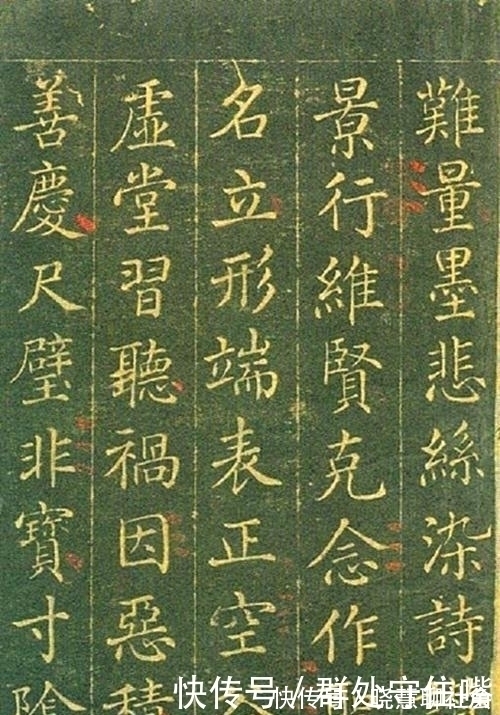 難量墨悲絲染詩
景行維賢克念作
名立形端表正空
虛堂習聽禍因惡積
善慶尺璧非寶寸陰
快传号 / 群处守住嘴
快传号